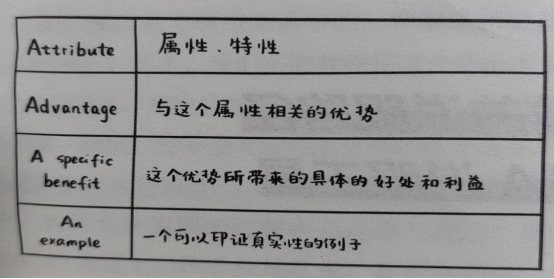 Attribute
属性、特性
Advantage
与这个属性相关的优势
A specific
benefit
这个优势所带来的具体的好处和利益
An
example
一个可以印证真实性的例子